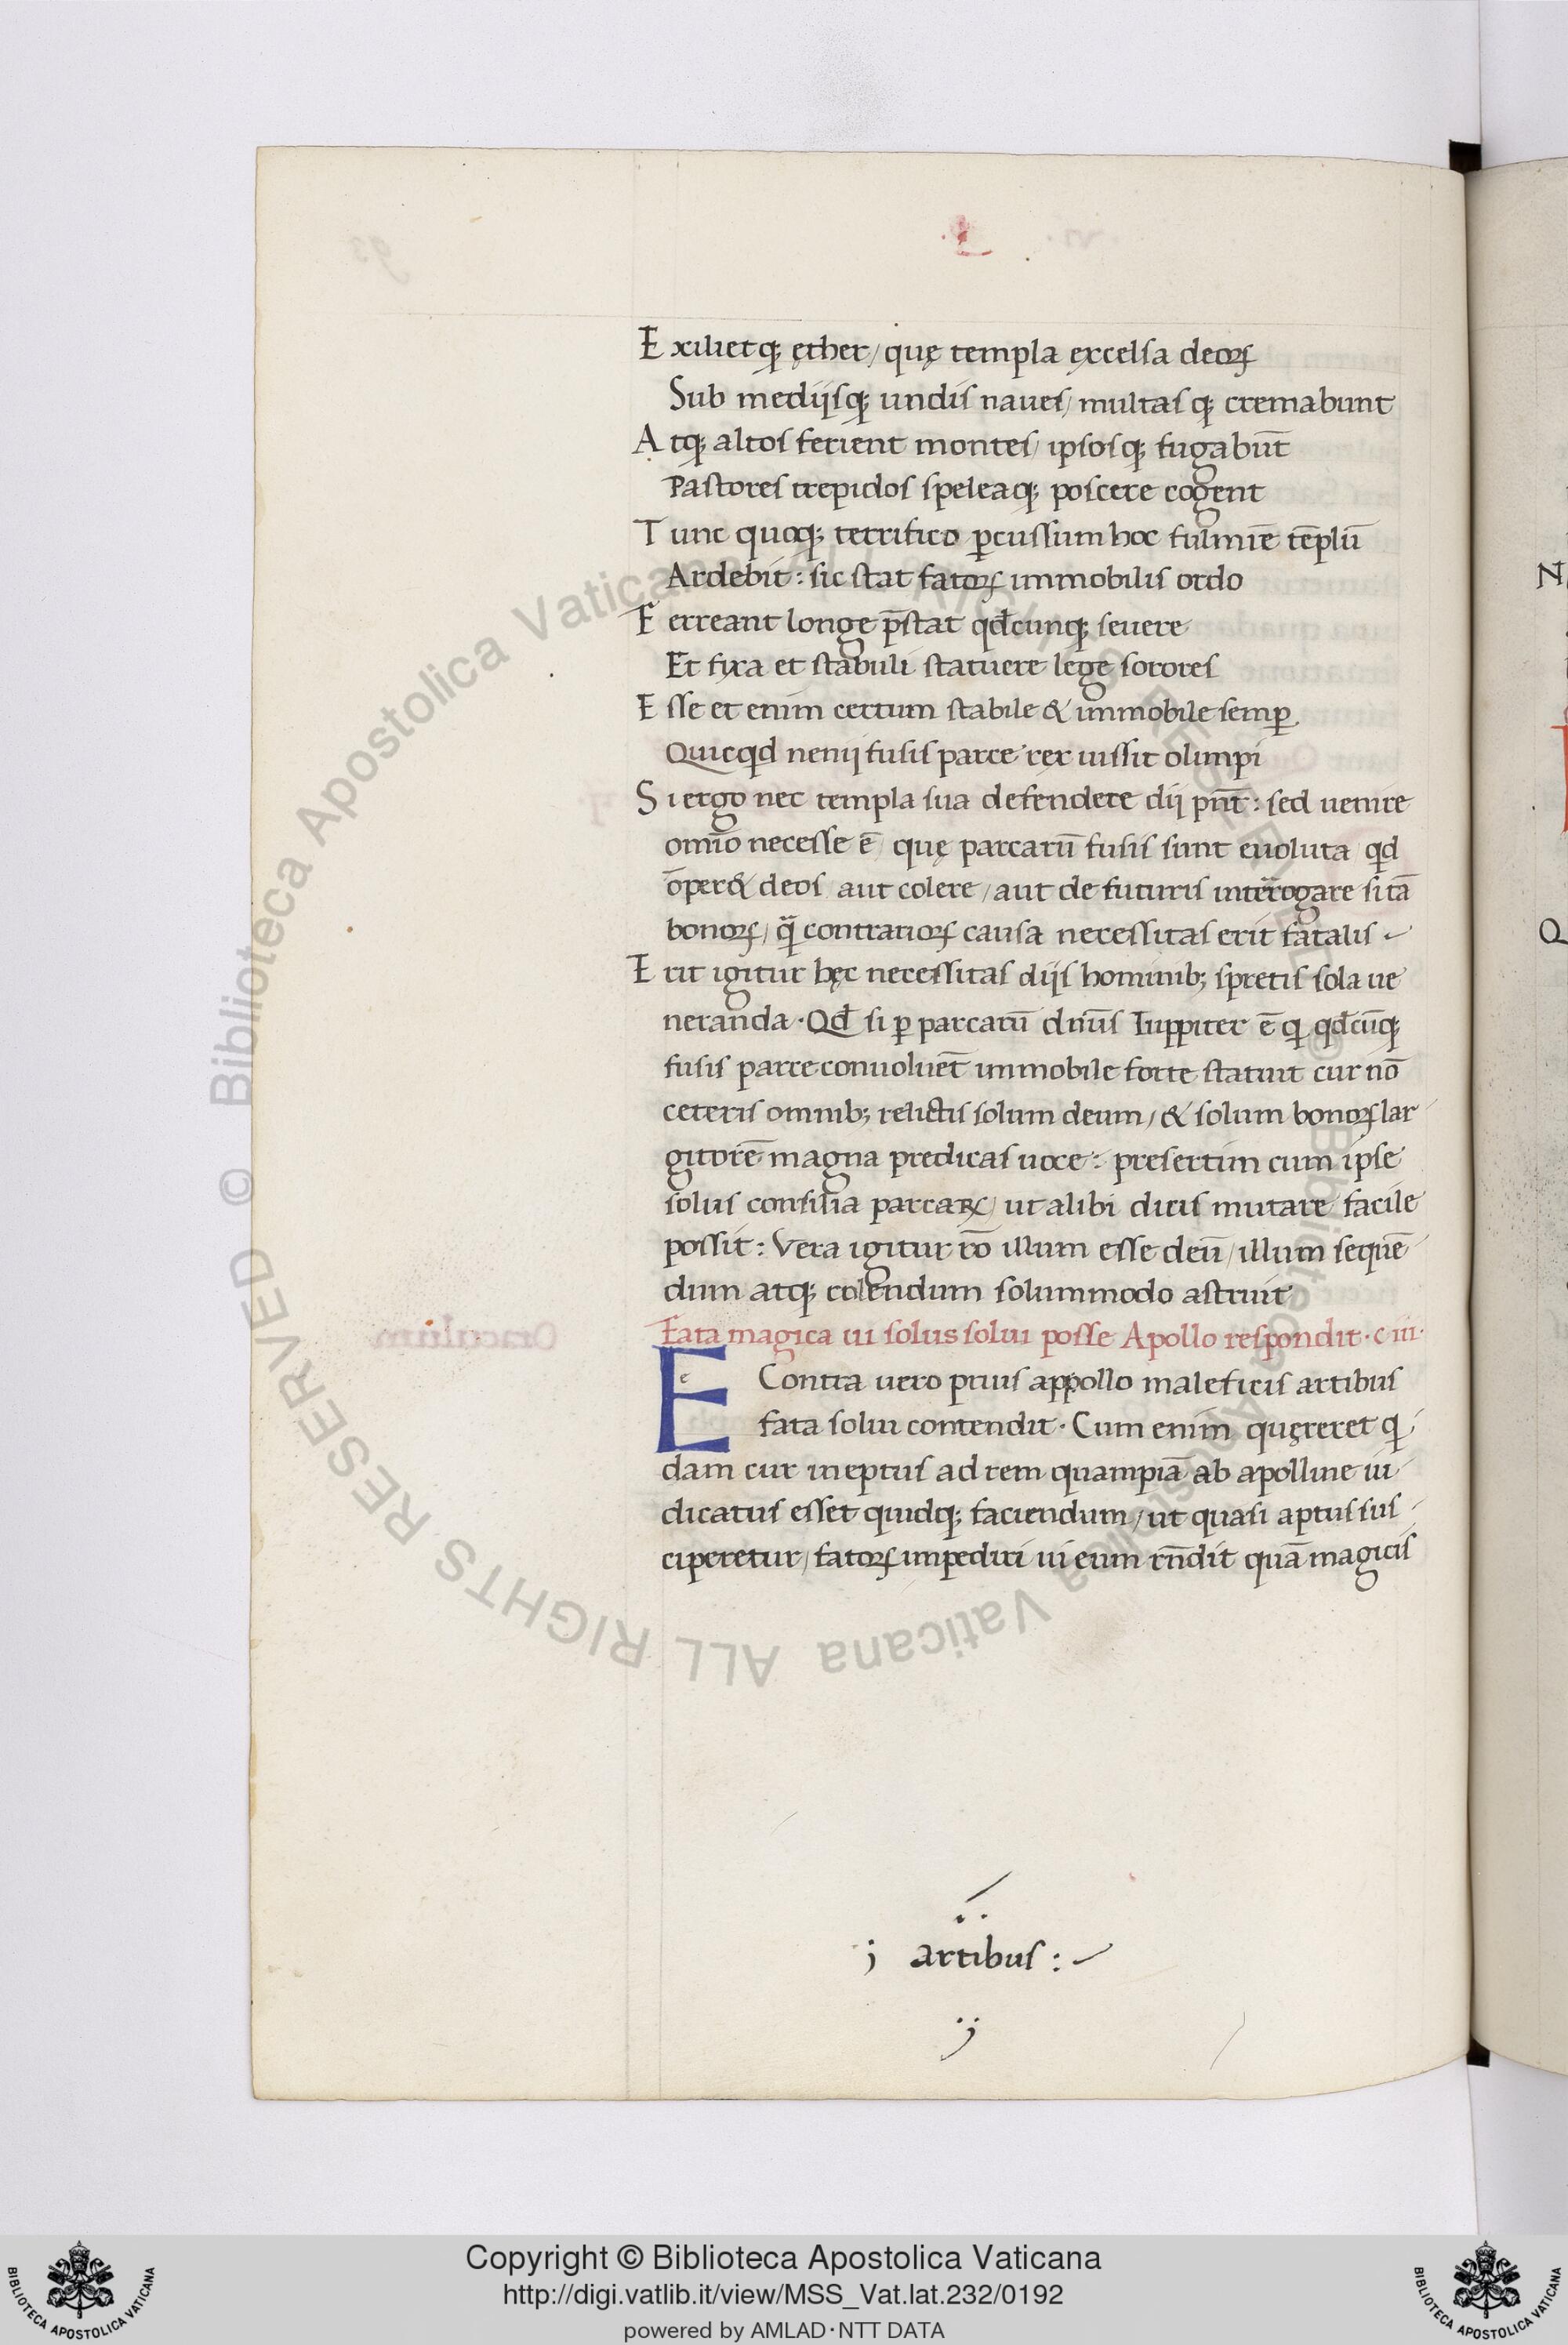 Exilietqꝫ ęther / quę templa excelsa deoꝝ
Sub mediisqꝫ undis naues / multasqꝫ cremabunt
Atqꝫ altos ferient montes / ipsosqꝫ fugabūt
Pastores trepidos speleaqꝫ poscere cogent
Tunc quoqꝫ terrifico ꝑcussum hoc fulmīe tēplū
Ardebit : sic stat fatoꝝ immobilis ordo
Ferreant longe p̄stat qđcunqꝫ seuere
Et fixa et stabuli statuere lege sorores
Esse et enim certum stabile & immobile semꝑ
Quicqͥd nenij fusis parce rex iussit olimpi
Si ergo nec templa sua defendere dij pn̄t : sed uenire
omīo necesse ē quę parcarū fusis sunt euoluta qͥd
oper& deos aut colere / aut de futuris interrogare si tā
bonoꝝ / qͣ̄ contrarioꝝ causa necessitas erit fatalis
Erit igitur hęc necessitas diis hominibꝫ spretis sola ue
neranda · Qđ si ꝑ parcarū dn̄us Iuppiter ē qͥ qđcūqꝫ
fusis parce conuoluēt immobile forte statuit cur nō
ceteris omnibꝫ relictis solum deum / & solum bonoꝝ lar
gitorē magna predicas uoce : presertim cum ipse
solus consilia parcaꝝ / ut alibi dicis mutare facile
possit : Vera igitur rō illum esse deū / illum sequē
dum atqꝫ colendum solummodo astruit
Fata magica ui solus solui posse Apollo respondit · c iii ·
e
E Contra uero prius appollo maleficis artibus
fata solui contendit · Cum enim quęreret qͥ
dam cur ineptus ad rem quampiā ab apolline iu
dicatus esset quidqꝫ faciendum / ut quasi aptus sus
ciperetur / fatoꝝ impediri ui eum rn̄dit quā magicis
artibus :
Copyright © Biblioteca Apostolica Vaticana
http://digi.vatlib.it/view/MSS_Vat.lat.232/0192
powered by AMLAD·NTT DATA
BIBLIOTECA APOSTOLICA VATICANA
BIBLIOTECA APOSTOLICA VATICANA
© Biblioteca Apostolica Vaticana ALL RIGHTS RESERVED © Biblioteca Apostolica Vaticana ALL RIGHTS RESERVED